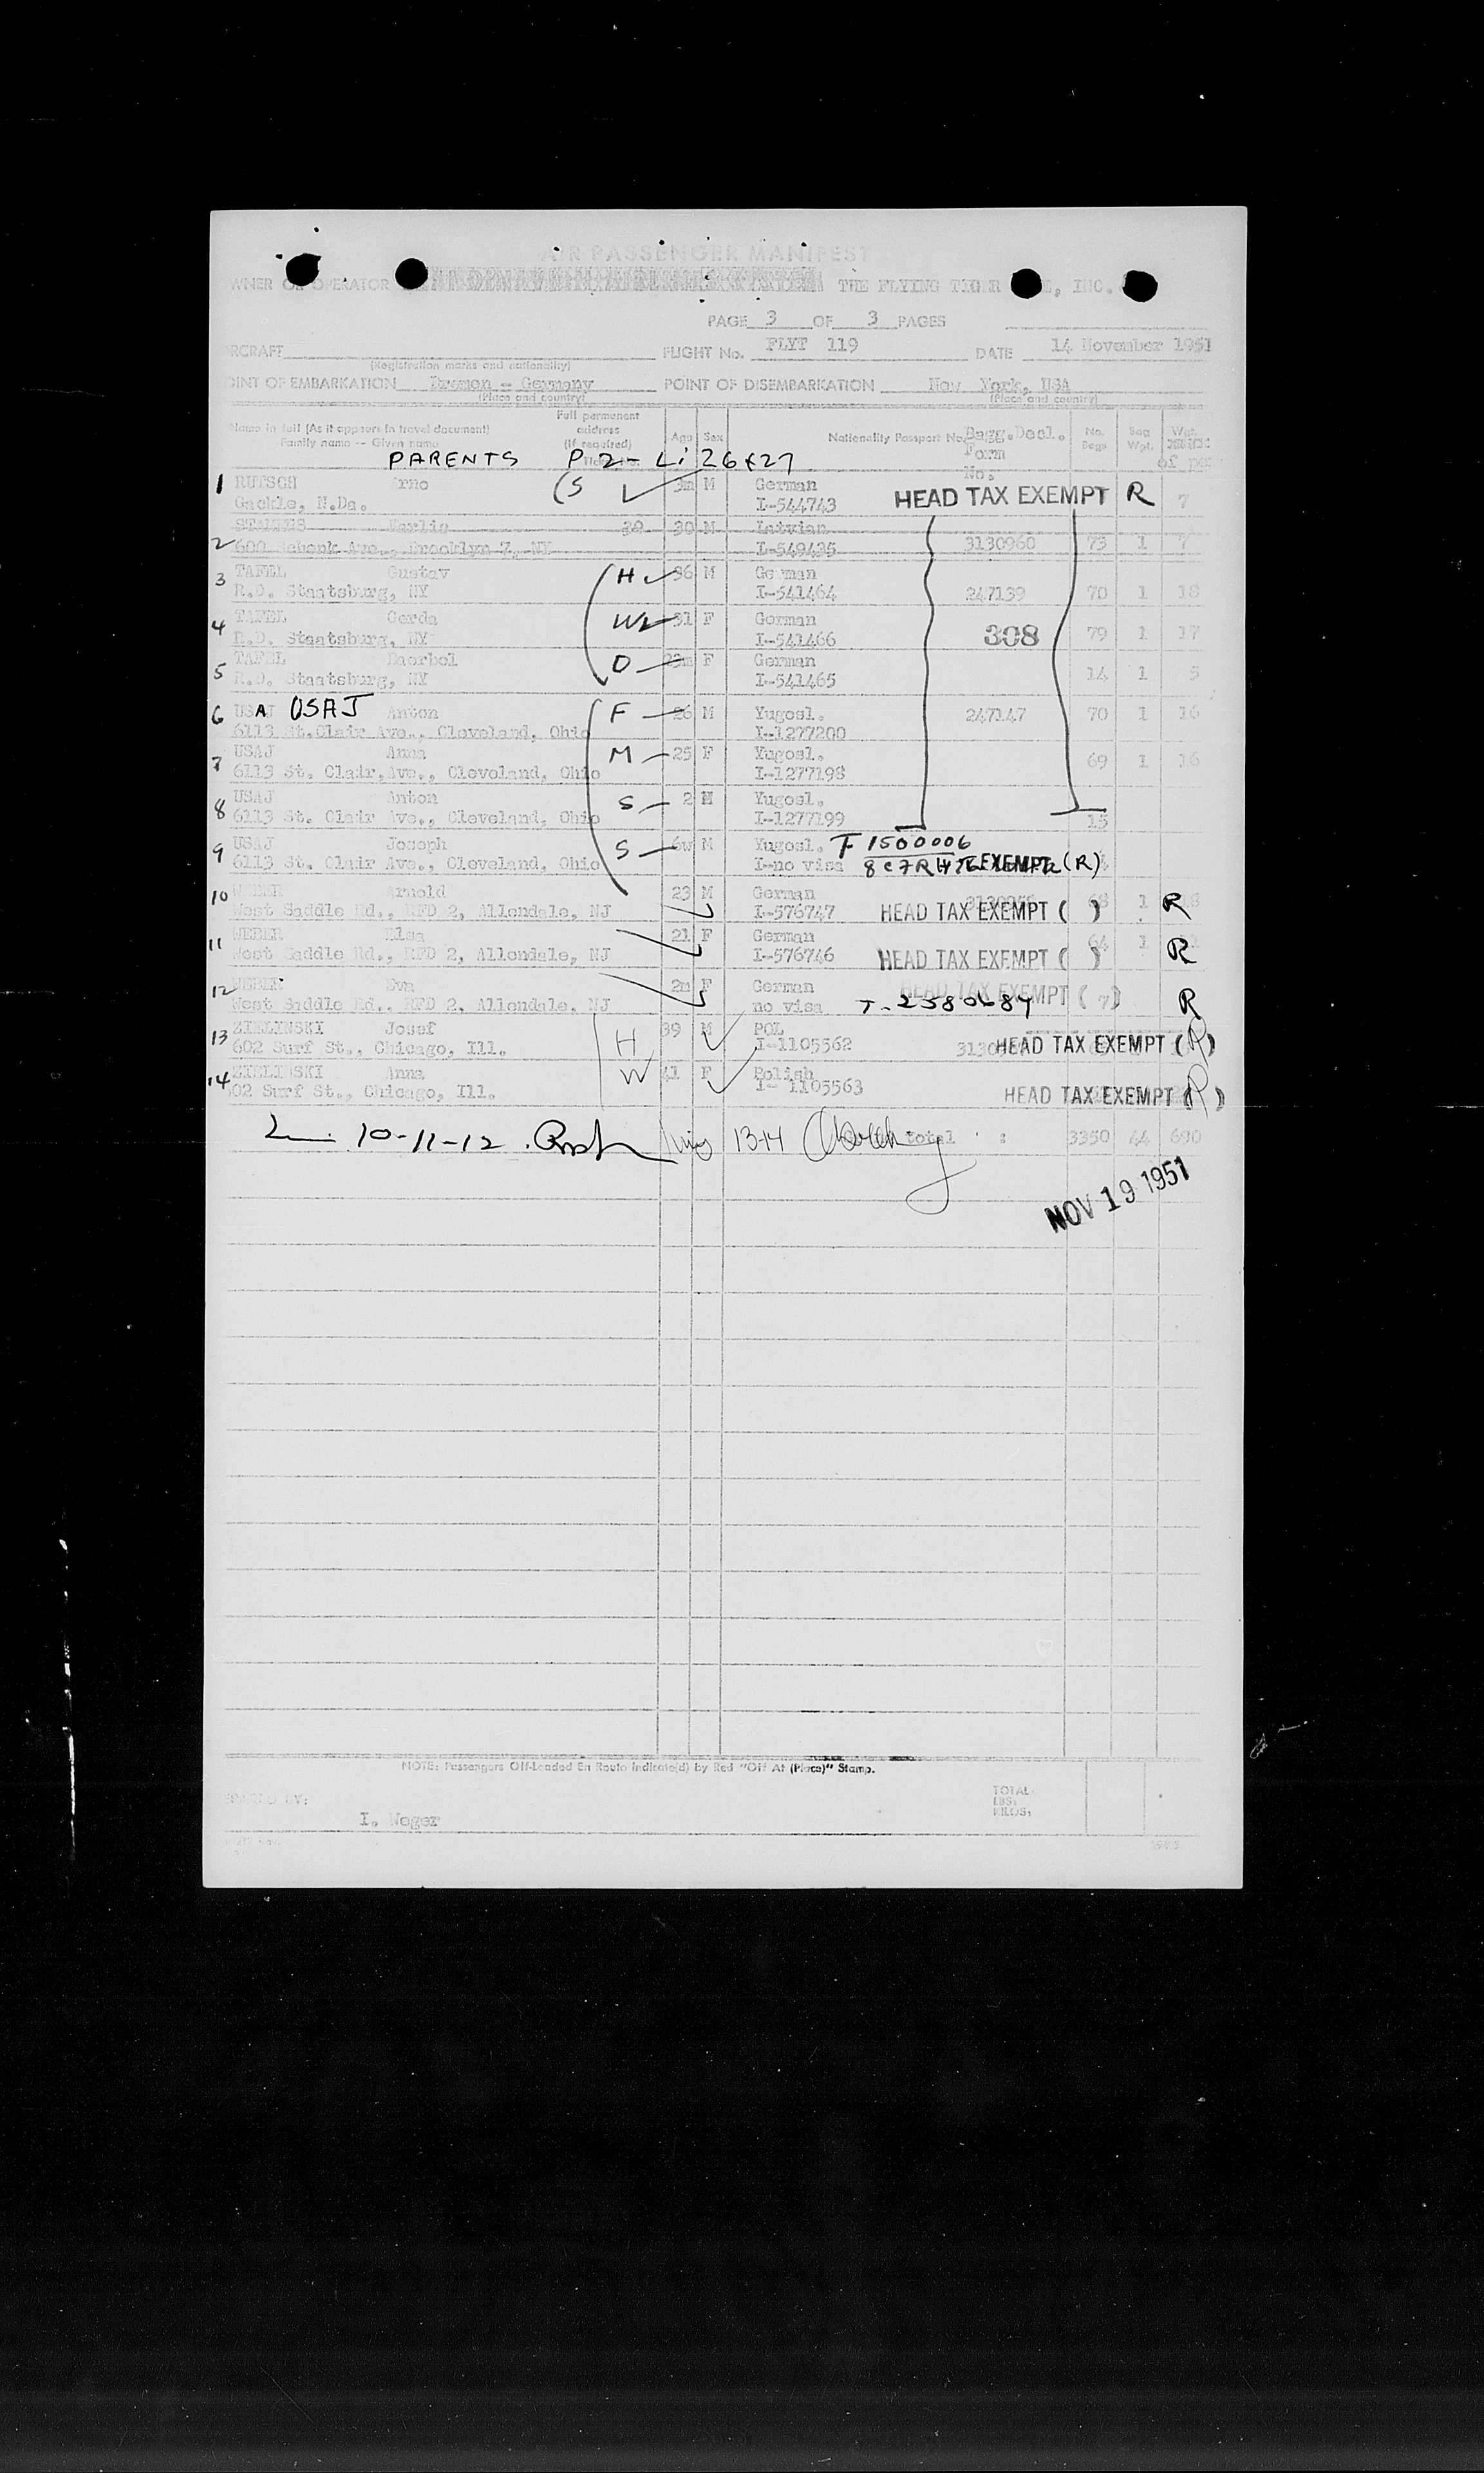 AIR PASSENGER MANIFEST
WNER OR OPERATOR THE FLYING TIGER E, INC.
PAGE 3 OF 3 PAGES
RCRAFT FLIGHT No. FLYT 119 DATE 14 November 1951
(Registration marks and nationality)
OINT OF EMBARKATION Bremen - Germany POINT OF DISEMBARKATION New York, USA
(Place and country) (Place and country)
Name in full (As it appears in travel document) Full permanent address (If required) Age Sex Nationality Passport No. Bagg.Decl. Form No. No. Bags Bag Wgt. Wgt. of
Family name -- Given name
PARENTS P 2 - Li 26 & 27
1 RUTSCH Arno (S 3m M German HEAD TAX EXEMPT R 7
Gackle, N.Da. I-544743
STALTES Karlis 30 30 M Latvian
2 600 Schenk Ave., Brooklyn 7, NY I-549435 3130960 73 1 7
3 TAFEL Gustav H 36 M German
R.D. Staatsburg, NY I-541464 247139 70 1 18
4 TAFEL Gerda W 31 F German
R.D. Staatsburg, NY I-541466 308 79 1 17
5 TAFEL Baerbel D 23m F German
R.D. Staatsburg, NY I-541465 14 1 5
6 USAJ USAJ Anton F 26 M Yugosl. 247147 70 1 16
6113 St.Clair Ave., Cleveland, Ohio I-1277200
7 USAJ Anna M 25 F Yugosl.
6113 St. Clair,Ave., Cleveland, Ohio I-1277198 69 1 16
8 USAJ Anton S 2 M Yugosl.
6113 St. Clair Ave., Cleveland, Ohio I-1277199 15
9 USAJ Joseph S 6w M Yugosl. F 1500006
6113 St. Clair Ave., Cleveland, Ohio I-no visa 8 CFR EXEMPT (R)
10 WEBER Arnold 23 M German 68 1
West Saddle Rd., RFD 2, Allendale, NJ I-576747 HEAD TAX EXEMPT ( ) R
11 WEBER Elsa 21 F German 64 1
West Saddle Rd., RFD 2, Allendale, NJ I-576746 HEAD TAX EXEMPT ( ) R
12 WEBER Eva 2m F German HEAD TAX EXEMPT ( )
West Saddle Rd., RFD 2, Allendale, NJ no visa T-2580684 R
13 ZIELINSKI Josef H 39 M POL
602 Surf St., Chicago, Ill. I-1105562 HEAD TAX EXEMPT (R)
14 ZIELINSKI Anna W 41 F Polish
602 Surf St., Chicago, Ill. I- 1105563 HEAD TAX EXEMPT (R)
10-11-12 13-14 total : 3350 44 690
NOV 19 1951
NOTE: Passengers Off-Loaded En Route Indicate(d) by Red "Off At (Place)" Stamp.
EPARED BY: TOTAL
LBS:
I. Wager KILOS: